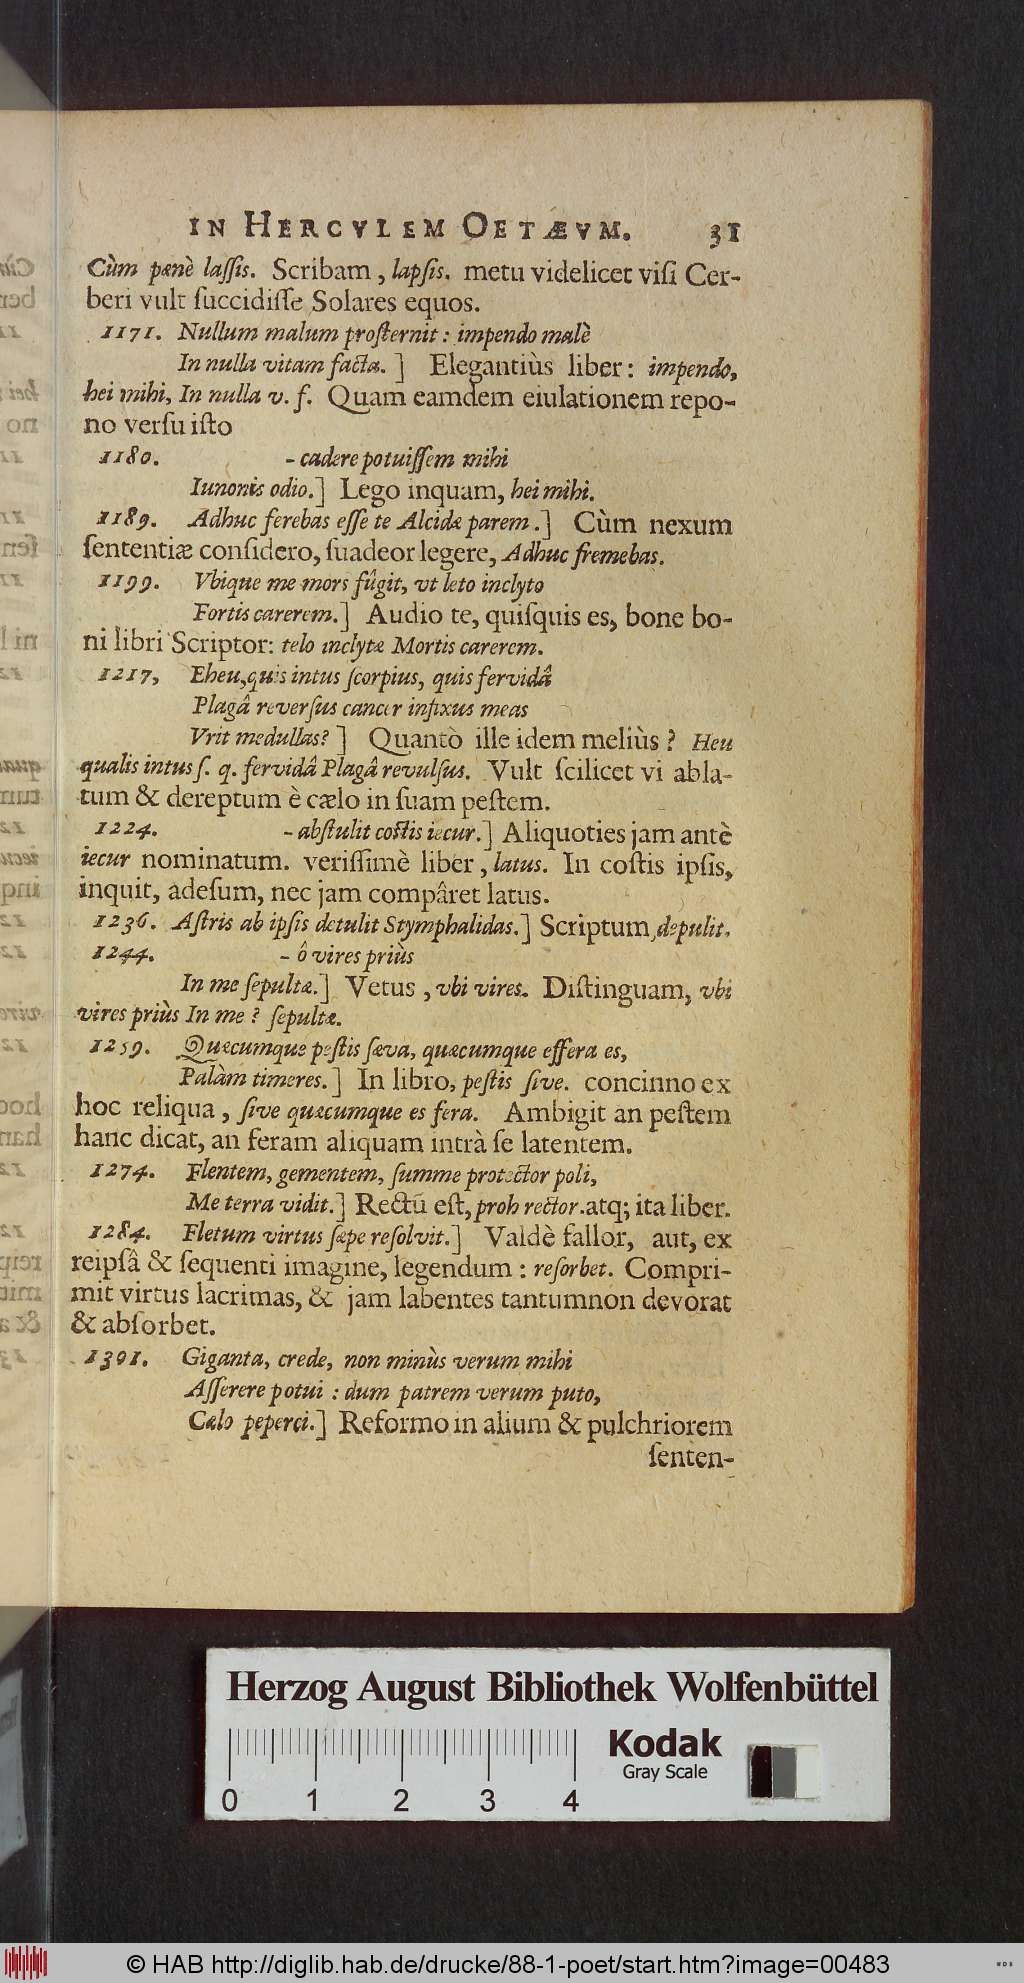 IN HERCVLEM OETÆVM. 31
Cùm pænè laſſis. Scribam, lapſis. metu videlicet viſi Cer-
beri vult ſuccidiſſe Solares equos.
1171. Nullum malum proſternit: impendo malè
In nulla vitam facta.] Elegantiùs liber: impendo,
hei mihi, In nulla v. f. Quam eamdem eiulationem repo-
no verſu iſto
1180. - cadere potuiſſem mihi
Iunonis odio.] Lego inquam, hei mihi.
1189. Adhuc ferebas eſſe te Alcidæ parem.] Cùm nexum
ſententiæ conſidero, ſuadeor legere, Adhuc fremebas.
1199. Vbique me mors fûgit, vt leto inclyto
Fortis carerem.] Audio te, quiſquis es, bone bo-
ni libri Scriptor: telo inclytæ Mortis carerem.
1217, Eheu, quis intus ſcorpius, quis fervidâ
Plagâ reverſus cancer infixus meas
Vrit medullas?] Quantò ille idem meliùs? Heu
qualis intus ſ. q. fervidâ Plagâ revulſus. Vult ſcilicet vi abla-
tum & dereptum è cælo in ſuam peſtem.
1224. - abſtulit coſtis iecur.] Aliquoties jam antè
iecur nominatum. veriſſimè liber, latus. In coſtis ipſis,
inquit, adeſum, nec jam compâret latus.
1236. Aſtris ab ipſis detulit Stymphalidas.] Scriptum, depulit.
1244. - ô vires priùs
In me ſepultæ.] Vetus, vbi vires. Diſtinguam, vbi
vires priùs In me? ſepultæ.
1259. Quæcumque peſtis ſæva, quæcumque effera es,
Palàm timeres.] In libro, peſtis ſive. concinno ex
hoc reliqua, ſive quæcumque es fera. Ambigit an peſtem
hanc dicat, an feram aliquam intrà ſe latentem.
1274. Flentem, gementem, ſumme protector poli,
Me terra vidit.] Rectū eſt, proh rector. atq; ita liber.
1284. Fletum virtus ſæpe reſolvit.] Valdè fallor, aut, ex
reipſâ & ſequenti imagine, legendum: reſorbet. Compri-
mit virtus lacrimas, & jam labentes tantumnon devorat
& abſorbet.
1301. Giganta, crede, non minùs verum mihi
Aſſerere potui: dum patrem verum puto,
Cælo peperci.] Reformo in alium & pulchriorem
ſenten-
Herzog August Bibliothek Wolfenbüttel
Kodak
Gray Scale
0 1 2 3 4
© HAB http://diglib.hab.de/drucke/88-1-poet/start.htm?image=00483